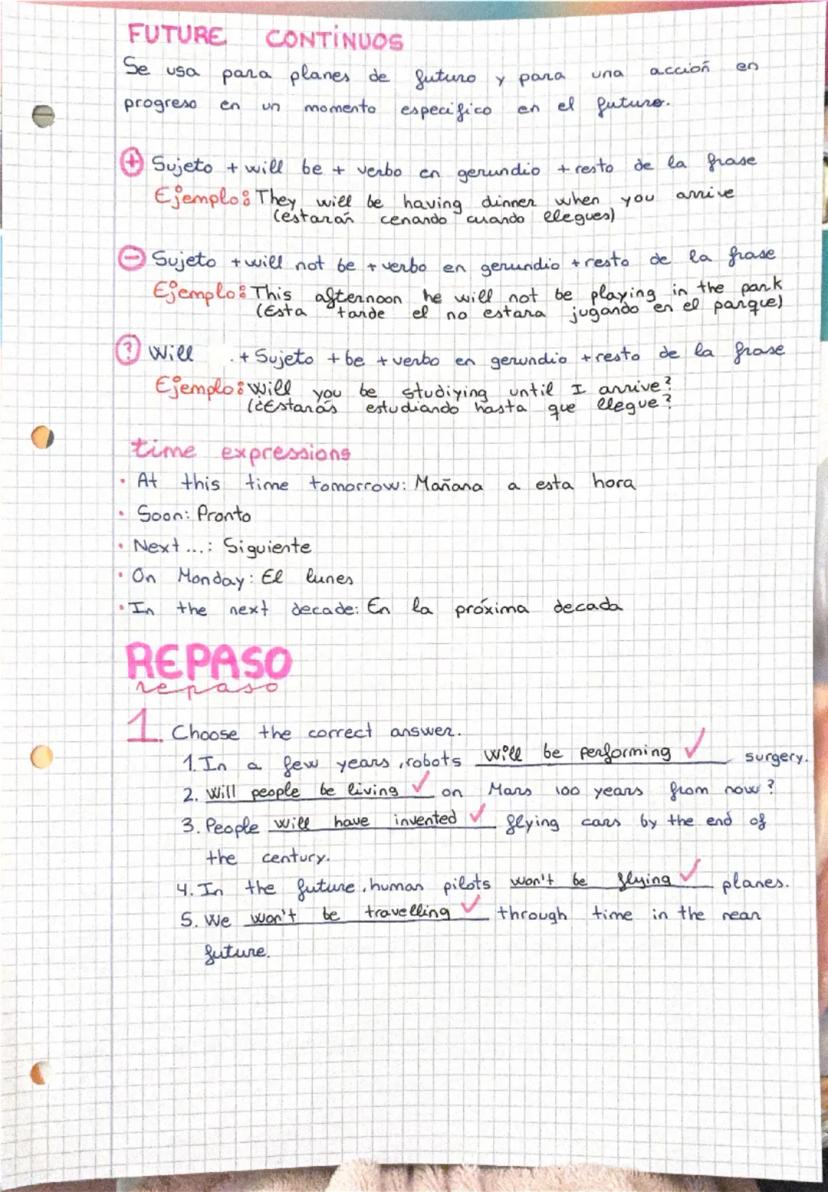 FUTURE CONTINUOS
Se usa para planes de futuro y para una acción en
progreso en un momento especifico en el futuro.
+ Sujeto + will be + verbo en gerundio + resto de la frase
Ejemplo: They will be having dinner when you arrive
(estarán cenando cuando llegues)
- Sujeto + will not be + verbo en gerundio + resto de la frase
Ejemplo: This afternoon he will not be playing in the park
(Esta tarde el no estara jugando en el parque)
? Will + Sujeto + be + verbo en gerundio + resto de la frase
Ejemplo: Will you be studiying until I arrive?
(¿Estarás estudiando hasta que llegue?
time expressions
• At this time tomorrow: Mañana a esta hora
• Soon: Pronto
• Next...: Siguiente
• On Monday: El lunes
• In the next decade: En la próxima decada
REPASO
repaso
1. Choose the correct answer.
1. In a few years, robots will be performing ✓ surgery.
2. Will people be living ✓ on Mars 100 years from now?
3. People will have invented ✓ flying cars by the end of
the century.
4. In the future, human pilots won't be flying ✓ planes.
5. We won't be travelling ✓ through time in the near
future.